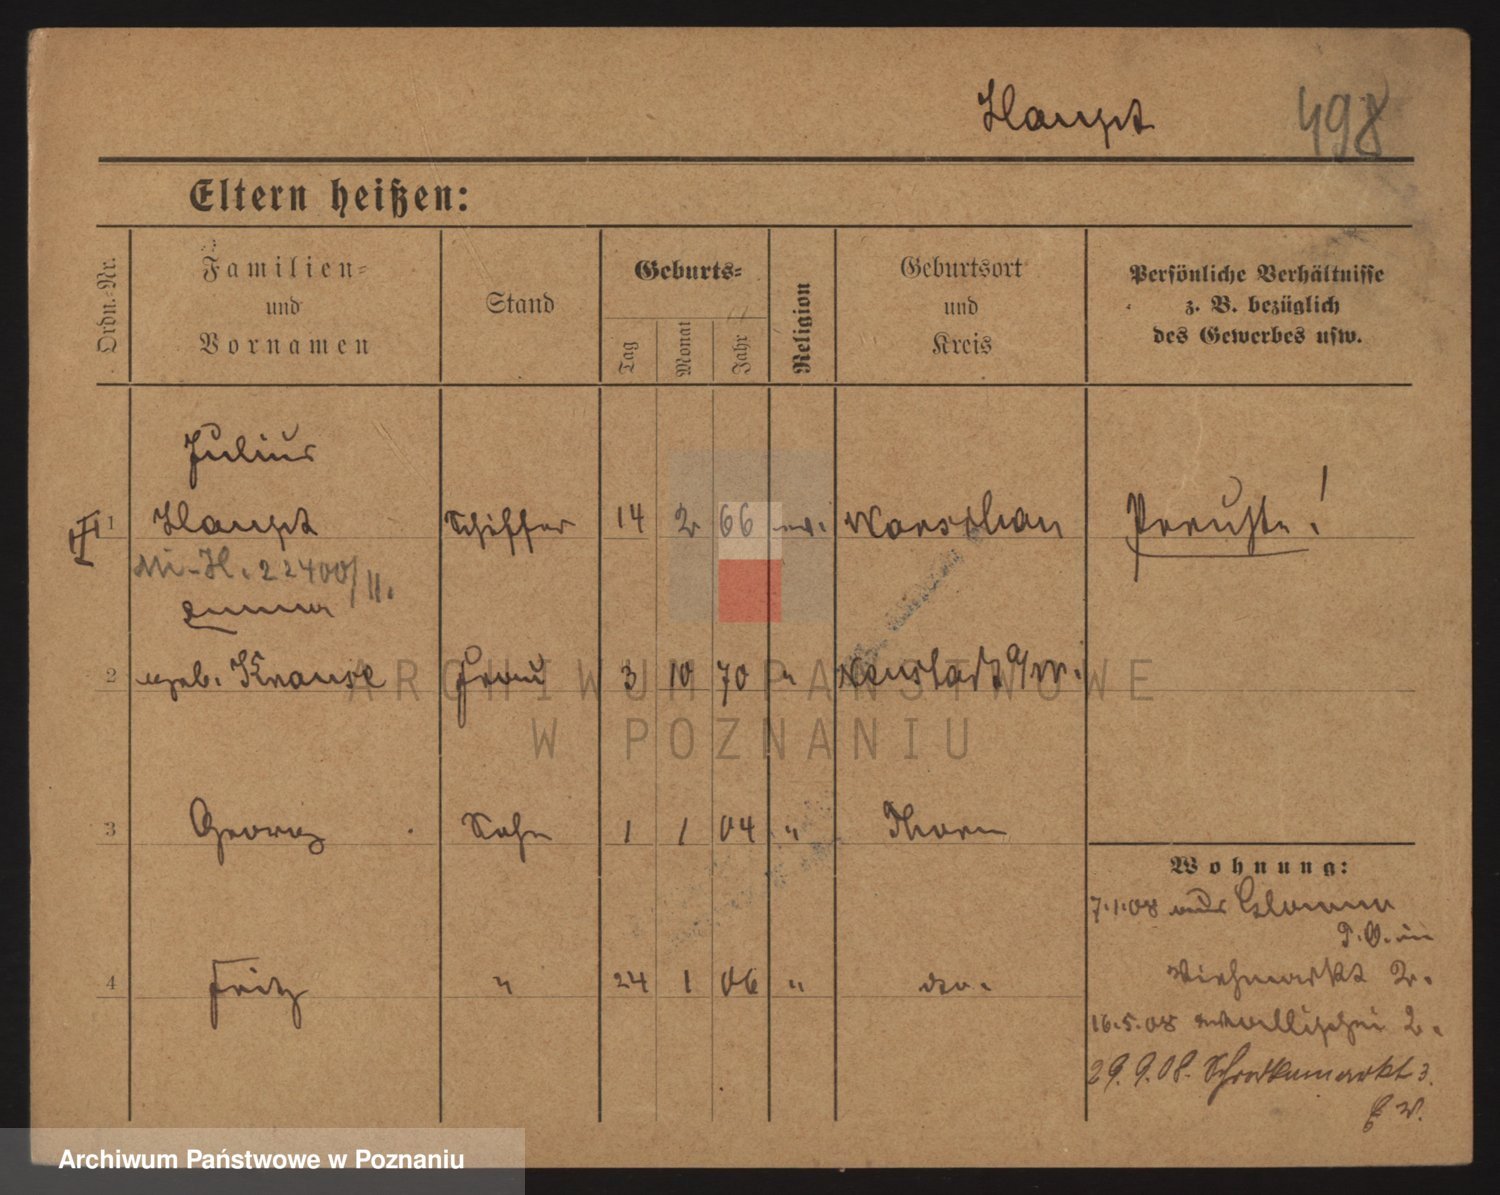 Haupt
498
Eltern heißen:
Ordn.-Nr.
Familien-
und
Vornamen
Stand
Geburts-
Tag
Monat
Jahr
Religion
Geburtsort
und
Kreis
Persönliche Verhältnisse
z. B. bezüglich
des Gewerbes usw.
Julius
1 Haupt Schiffer 14 2 66 ev. Warschau Preuße!
22400/II.
Emma
2 geb. Krause Frau 3 10 70 " Neustadt a/W.
3 Georg Sohn 1 1 04 " Thorn
Wohnung:
7.1.08 aus
4 Fritz " 24 1 06 " do.
Viehmarkt 2.
16.5.08 Wallischei 2.
29.9.08. Schrodkamarkt 3.
ARCHIWUM PAŃSTWOWE
W POZNANIU
Archiwum Państwowe w Poznaniu